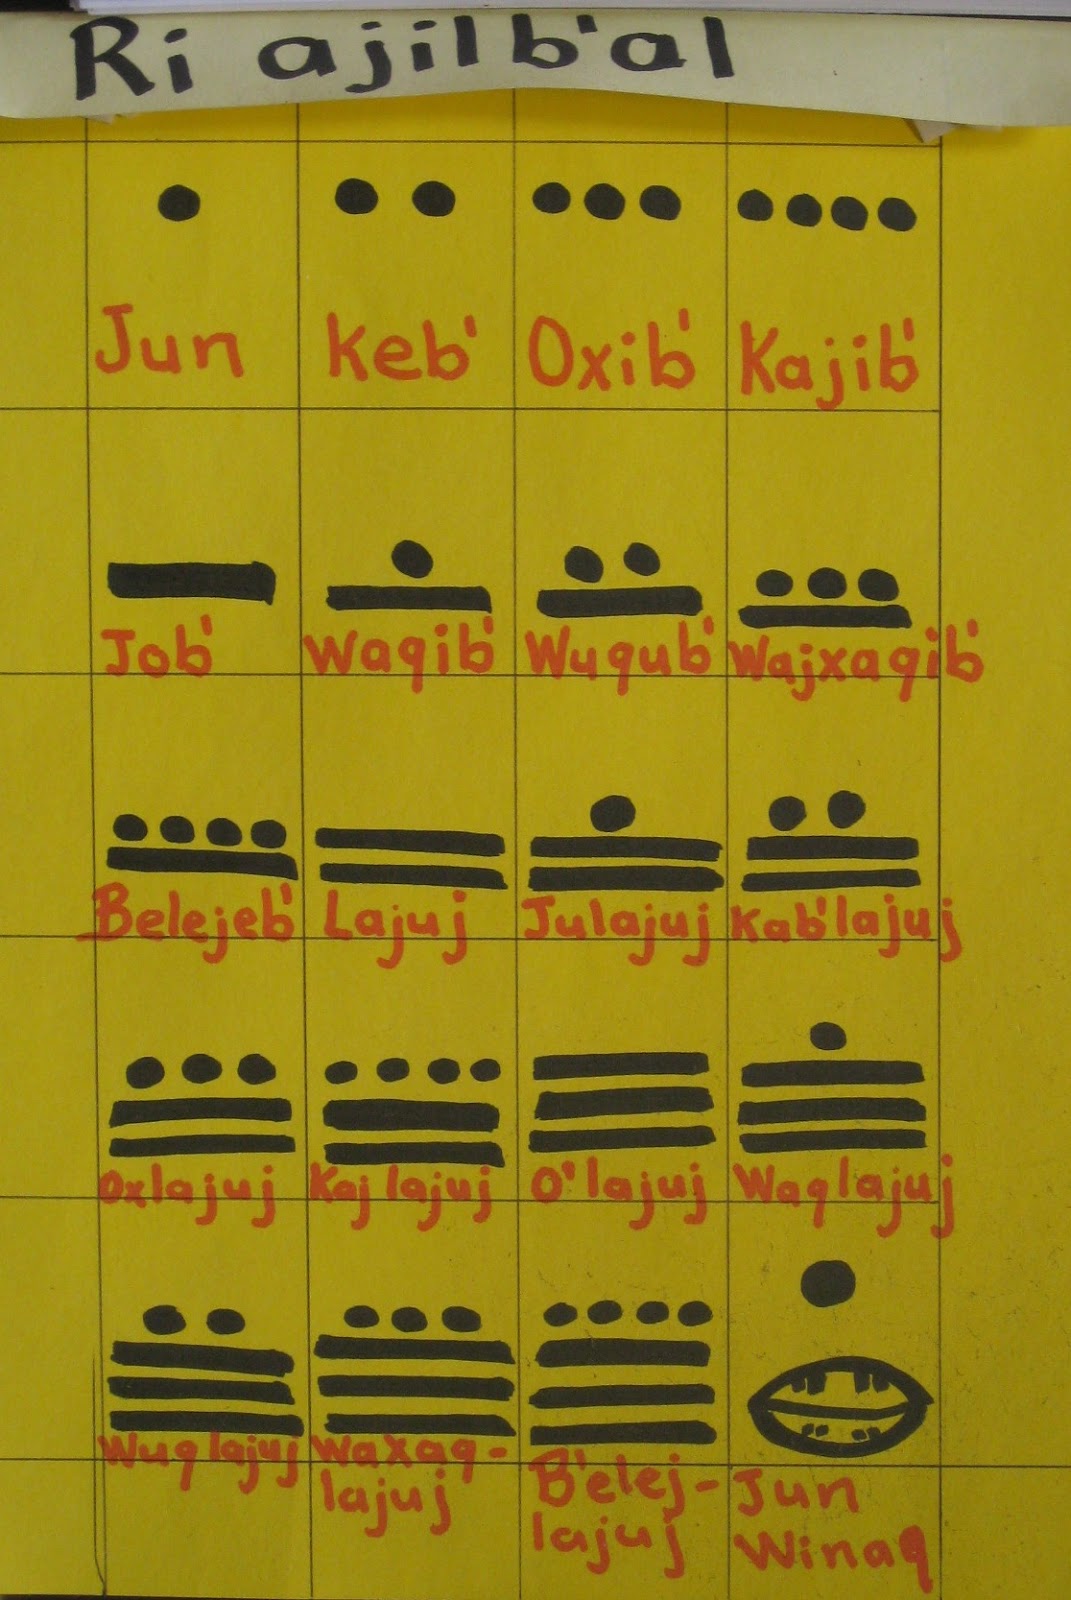 Ri ajilb'al
Jun Keb' Oxib' Kajib'
Job' Waqib' Wuqub' Wajxaqib'
Belejeb' Lajuj Julajuj Kab'lajuj
Oxlajuj Kajlajuj O'lajuj Waqlajuj
Wuqlajuj Waxaq-
lajuj B'elej-
lajuj Jun
Winaq